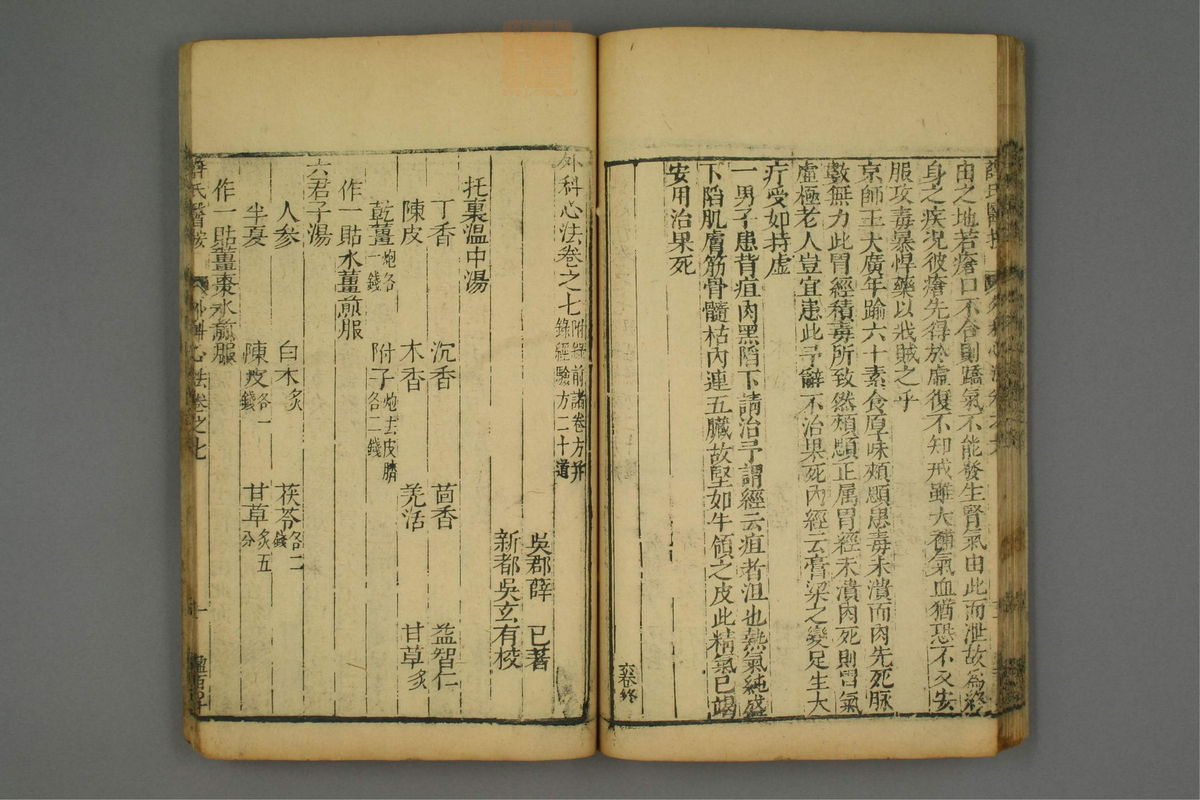 由之地若瘡口不合則蹻氣不能發生腎氣由此而泄故為終
身之疾況彼瘡先得於虛復不知戒雖大補氣血猶恐不及安
服攻毒暴悍藥以戕賊之乎
京師王大廣年踰六十素食厚味頰顋患毒未潰而肉先死脉
數無力此胃經積毒所致然頰顋正属胃經未潰肉死則胃氣
虛極老人豈宜患此予辭不治果死內經云膏粱之變足生大
疔受如持虛
一男子患背疽肉黑陷下請治予謂經云疽者沮也熱氣純盛
下陷肌膚筋骨髓枯內連五臟故堅如牛領之皮此精氣已竭
安用治果死
六卷終
外科心法卷之七 附錄前諸卷方并
錄經驗方二十道
吳郡薛 已著
新都吳玄有校
托裏溫中湯
丁香 沉香 茴香 益智仁
陳皮 木香 羌活 甘草炙
乾薑炮各一錢 附子炮去皮臍各二錢
作一貼水薑煎服
六君子湯
人參 白朮炙 茯苓各二錢
半夏 陳皮各一錢 甘草炙五分
作一貼薑棗水煎服
薛氏醫按 外科心法卷之七 一